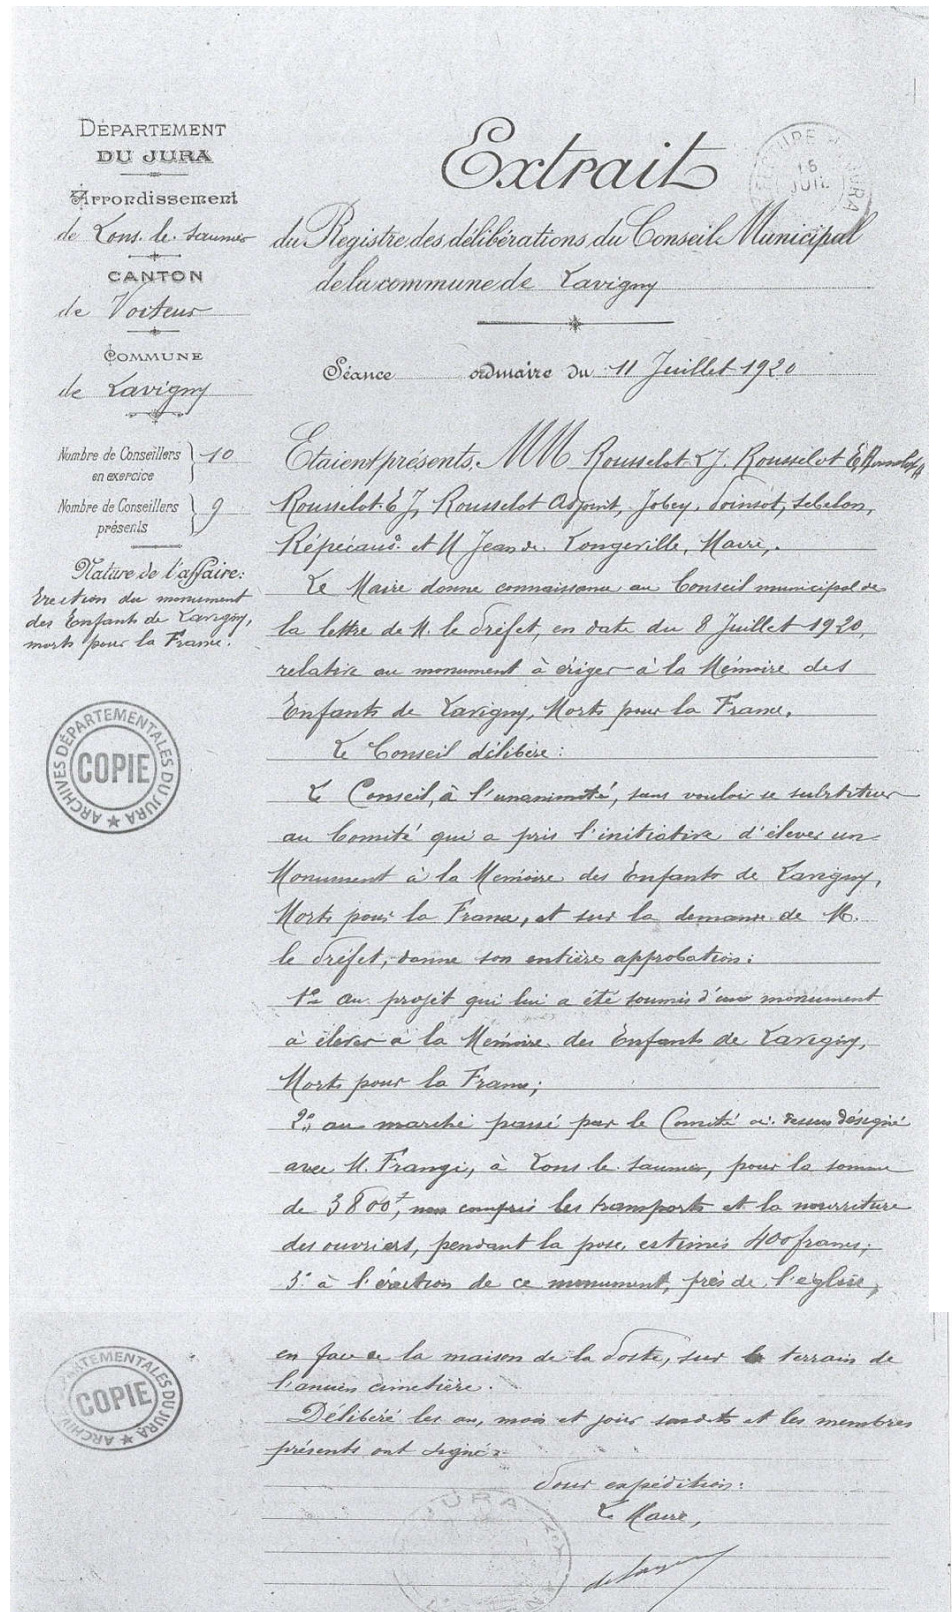 DÉPARTEMENT
DU JURA
Arrondissement
de Lons-le-Saunier
CANTON
de Voiteur
COMMUNE
de Lavigny
Nombre de Conseillers
en exercice } 10
Nombre de Conseillers
présents } 9
Nature de l'affaire:
Erection du monument
des Enfants de Lavigny,
morts pour la France.
ARCHIVES DÉPARTEMENTALES DU JURA
COPIE
Extrait
PRÉFECTURE JURA
JUIL
du Registre des délibérations du Conseil Municipal
de la commune de Lavigny
Séance ordinaire du 11 Juillet 1920
Etaient présents, MM Rousselot L J. Rousselot E,
Rousselot E J, Rousselot Adjoint, Jobey, Poinsot,
et M Jean de Longeville, Maire,.
Le Maire donne connaissance au Conseil municipal de
la lettre de M. le Préfet, en date du 8 Juillet 1920,
relative au monument à ériger à la Mémoire des
Enfants de Lavigny, Morts pour la France.
Le Conseil délibère:
Le Conseil, à l'unanimité, sans vouloir se substituer
au Comité qui a pris l'initiative d'élever un
Monument à la Mémoire des Enfants de Lavigny,
Morts pour la France, et sur la demande de M.
le Préfet, donne son entière approbation:
1° au projet qui lui a été soumis d'un monument
à élever à la Mémoire des Enfants de Lavigny,
Morts pour la France;
2° au marché passé par le Comité ci-dessus désigné
avec M. Frangi, à Lons le Saunier, pour la somme
de 3800f, non compris les transports et la nourriture
des ouvriers, pendant la pose, estimés 400 francs;
3° à l'érection de ce monument, près de l'église,
en face de la maison de la Poste, sur le terrain de
l'ancien cimetière.
Délibéré les an, mois et jour susdits et les membres
présents ont signé.
Pour expédition:
Le Maire,
ARCHIVES DÉPARTEMENTALES DU JURA
COPIE
JURA